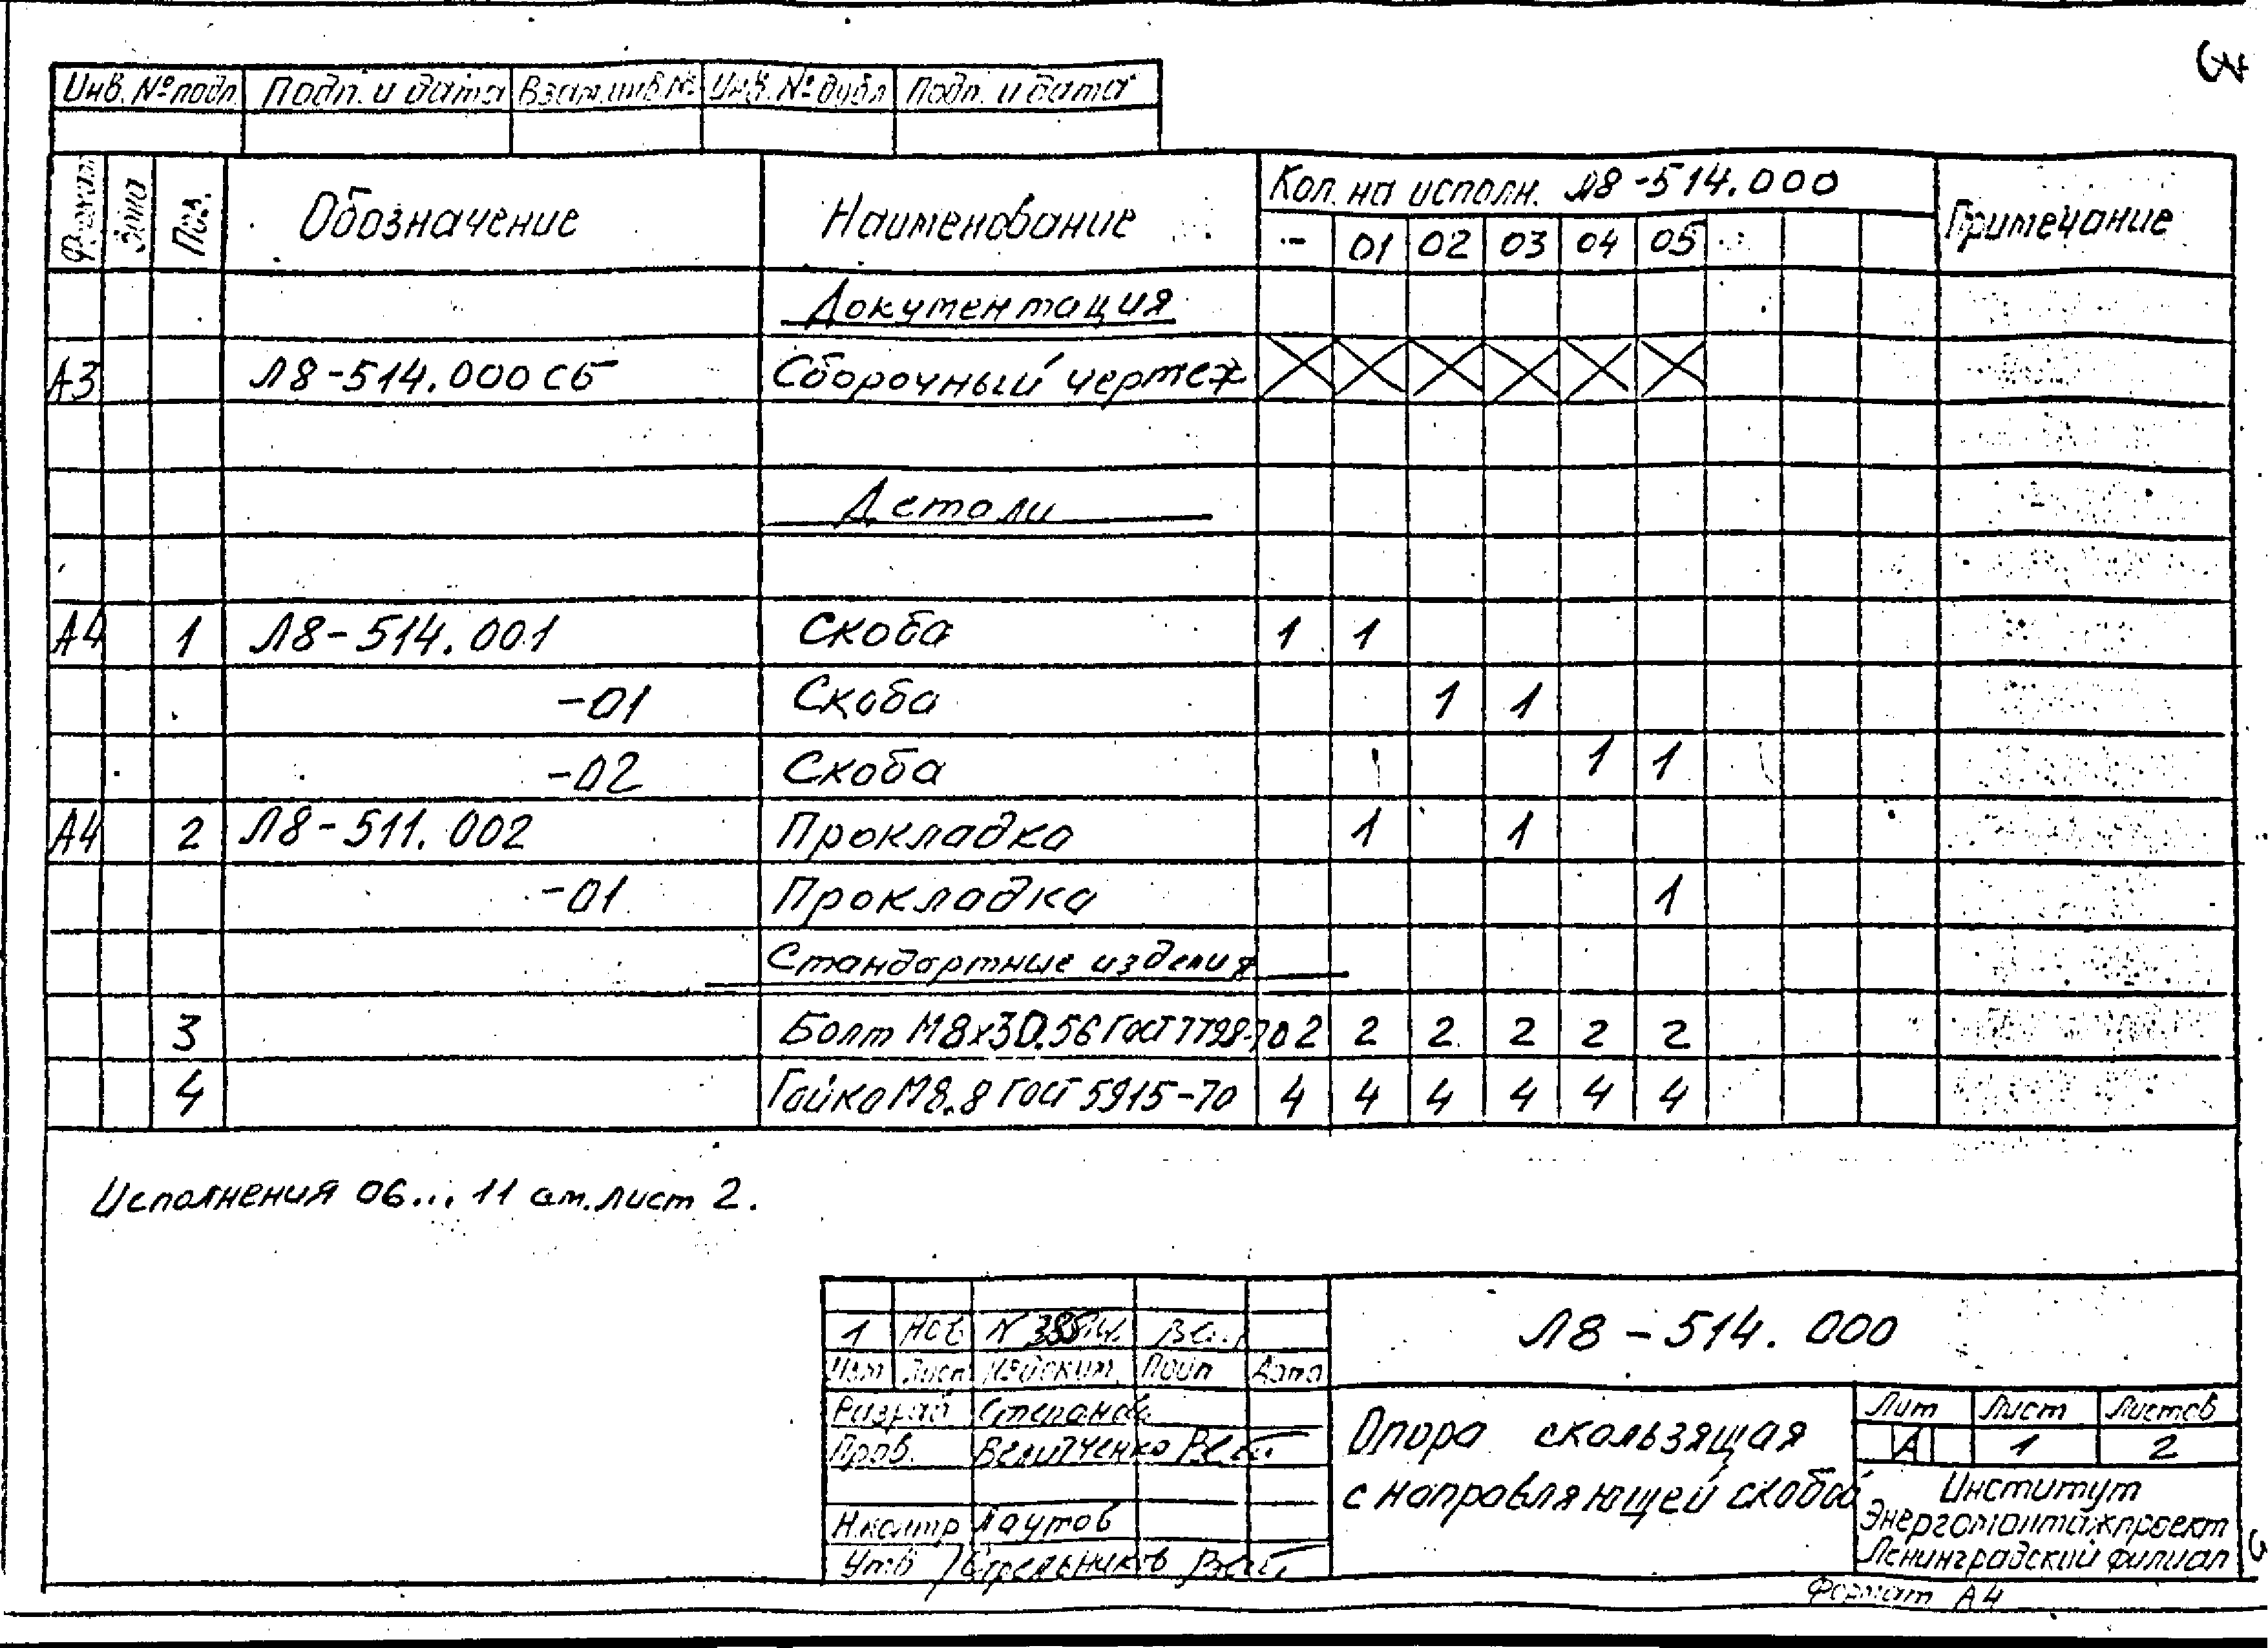 3
Инв. № подл. Подп. и дата Взам. инв. № Инв. № дубл Подп. и дата
Формат Зона Поз. Обозначение Наименование Кол. на исполн. Л8-514.000 Примечание
- 01 02 03 04 05
Документация
А3 Л8-514.000 СБ Сборочный чертеж
Детали
А4 1 Л8-514.001 Скоба 1 1
-01 Скоба 1 1
-02 Скоба 1 1
А4 2 Л8-511.002 Прокладка 1 1
-01 Прокладка 1
Стандартные изделия
3 Болт М8х30.56 ГОСТ 7798-70 2 2 2 2 2 2
4 Гайка М8.8 ГОСТ 5915-70 4 4 4 4 4 4
Исполнения 06... 11 см. лист 2.
1
Изм Лист № докум. Подп Дата
Л8-514.000
Разраб Степанов
Пров.
Н.контр
Утв Стрельников
Опора скользящая
с направляющей скобой
Лит Лист Листов
А 1 2
Институт
Энергомонтажпроект
Ленинградский филиал
Формат А4